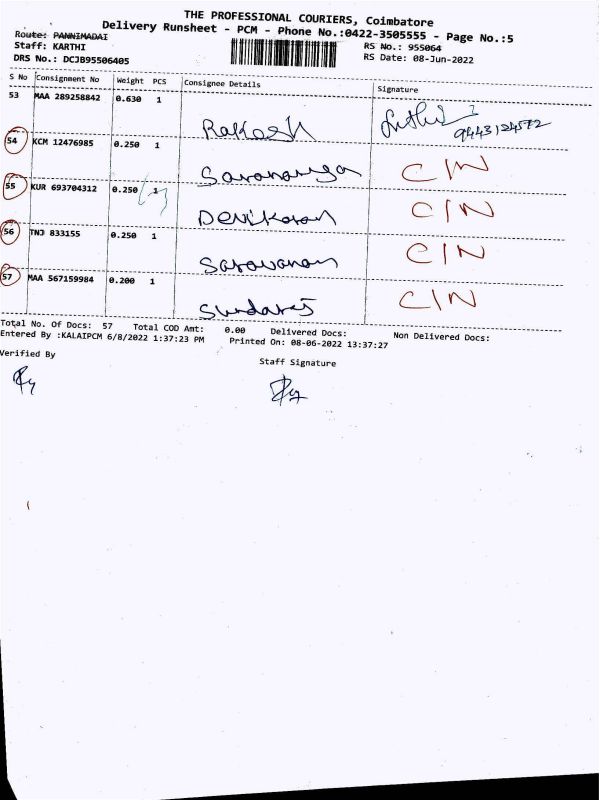 THE PROFESSIONAL COURIERS, Coimbatore
Delivery Runsheet - PCM - Phone No.:0422-3505555 - Page No.:5
Route: PANNIMADAI
Staff: KARTHI RS No.: 955064
DRS No.: DCJB95506405 RS Date: 08-Jun-2022
S No Consignment No Weight PCS Consignee Details Signature
53 MAA 289258842 0.630 1
Rakesh 9443124572
54 KCM 12476985 0.250 1
CIN
55 KUR 693704312 0.250 1
Devikaran CIN
56 TNJ 833155 0.250 1
Saravanan CIN
57 MAA 567159984 0.200 1
CIN
Total No. Of Docs: 57 Total COD Amt: 0.00 Delivered Docs: Non Delivered Docs:
Entered By :KALAIPCM 6/8/2022 1:37:23 PM Printed On: 08-06-2022 13:37:27
Verified By Staff Signature